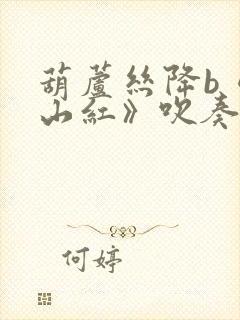 葫蘆絲降b《
山紅》吹奏
何婷